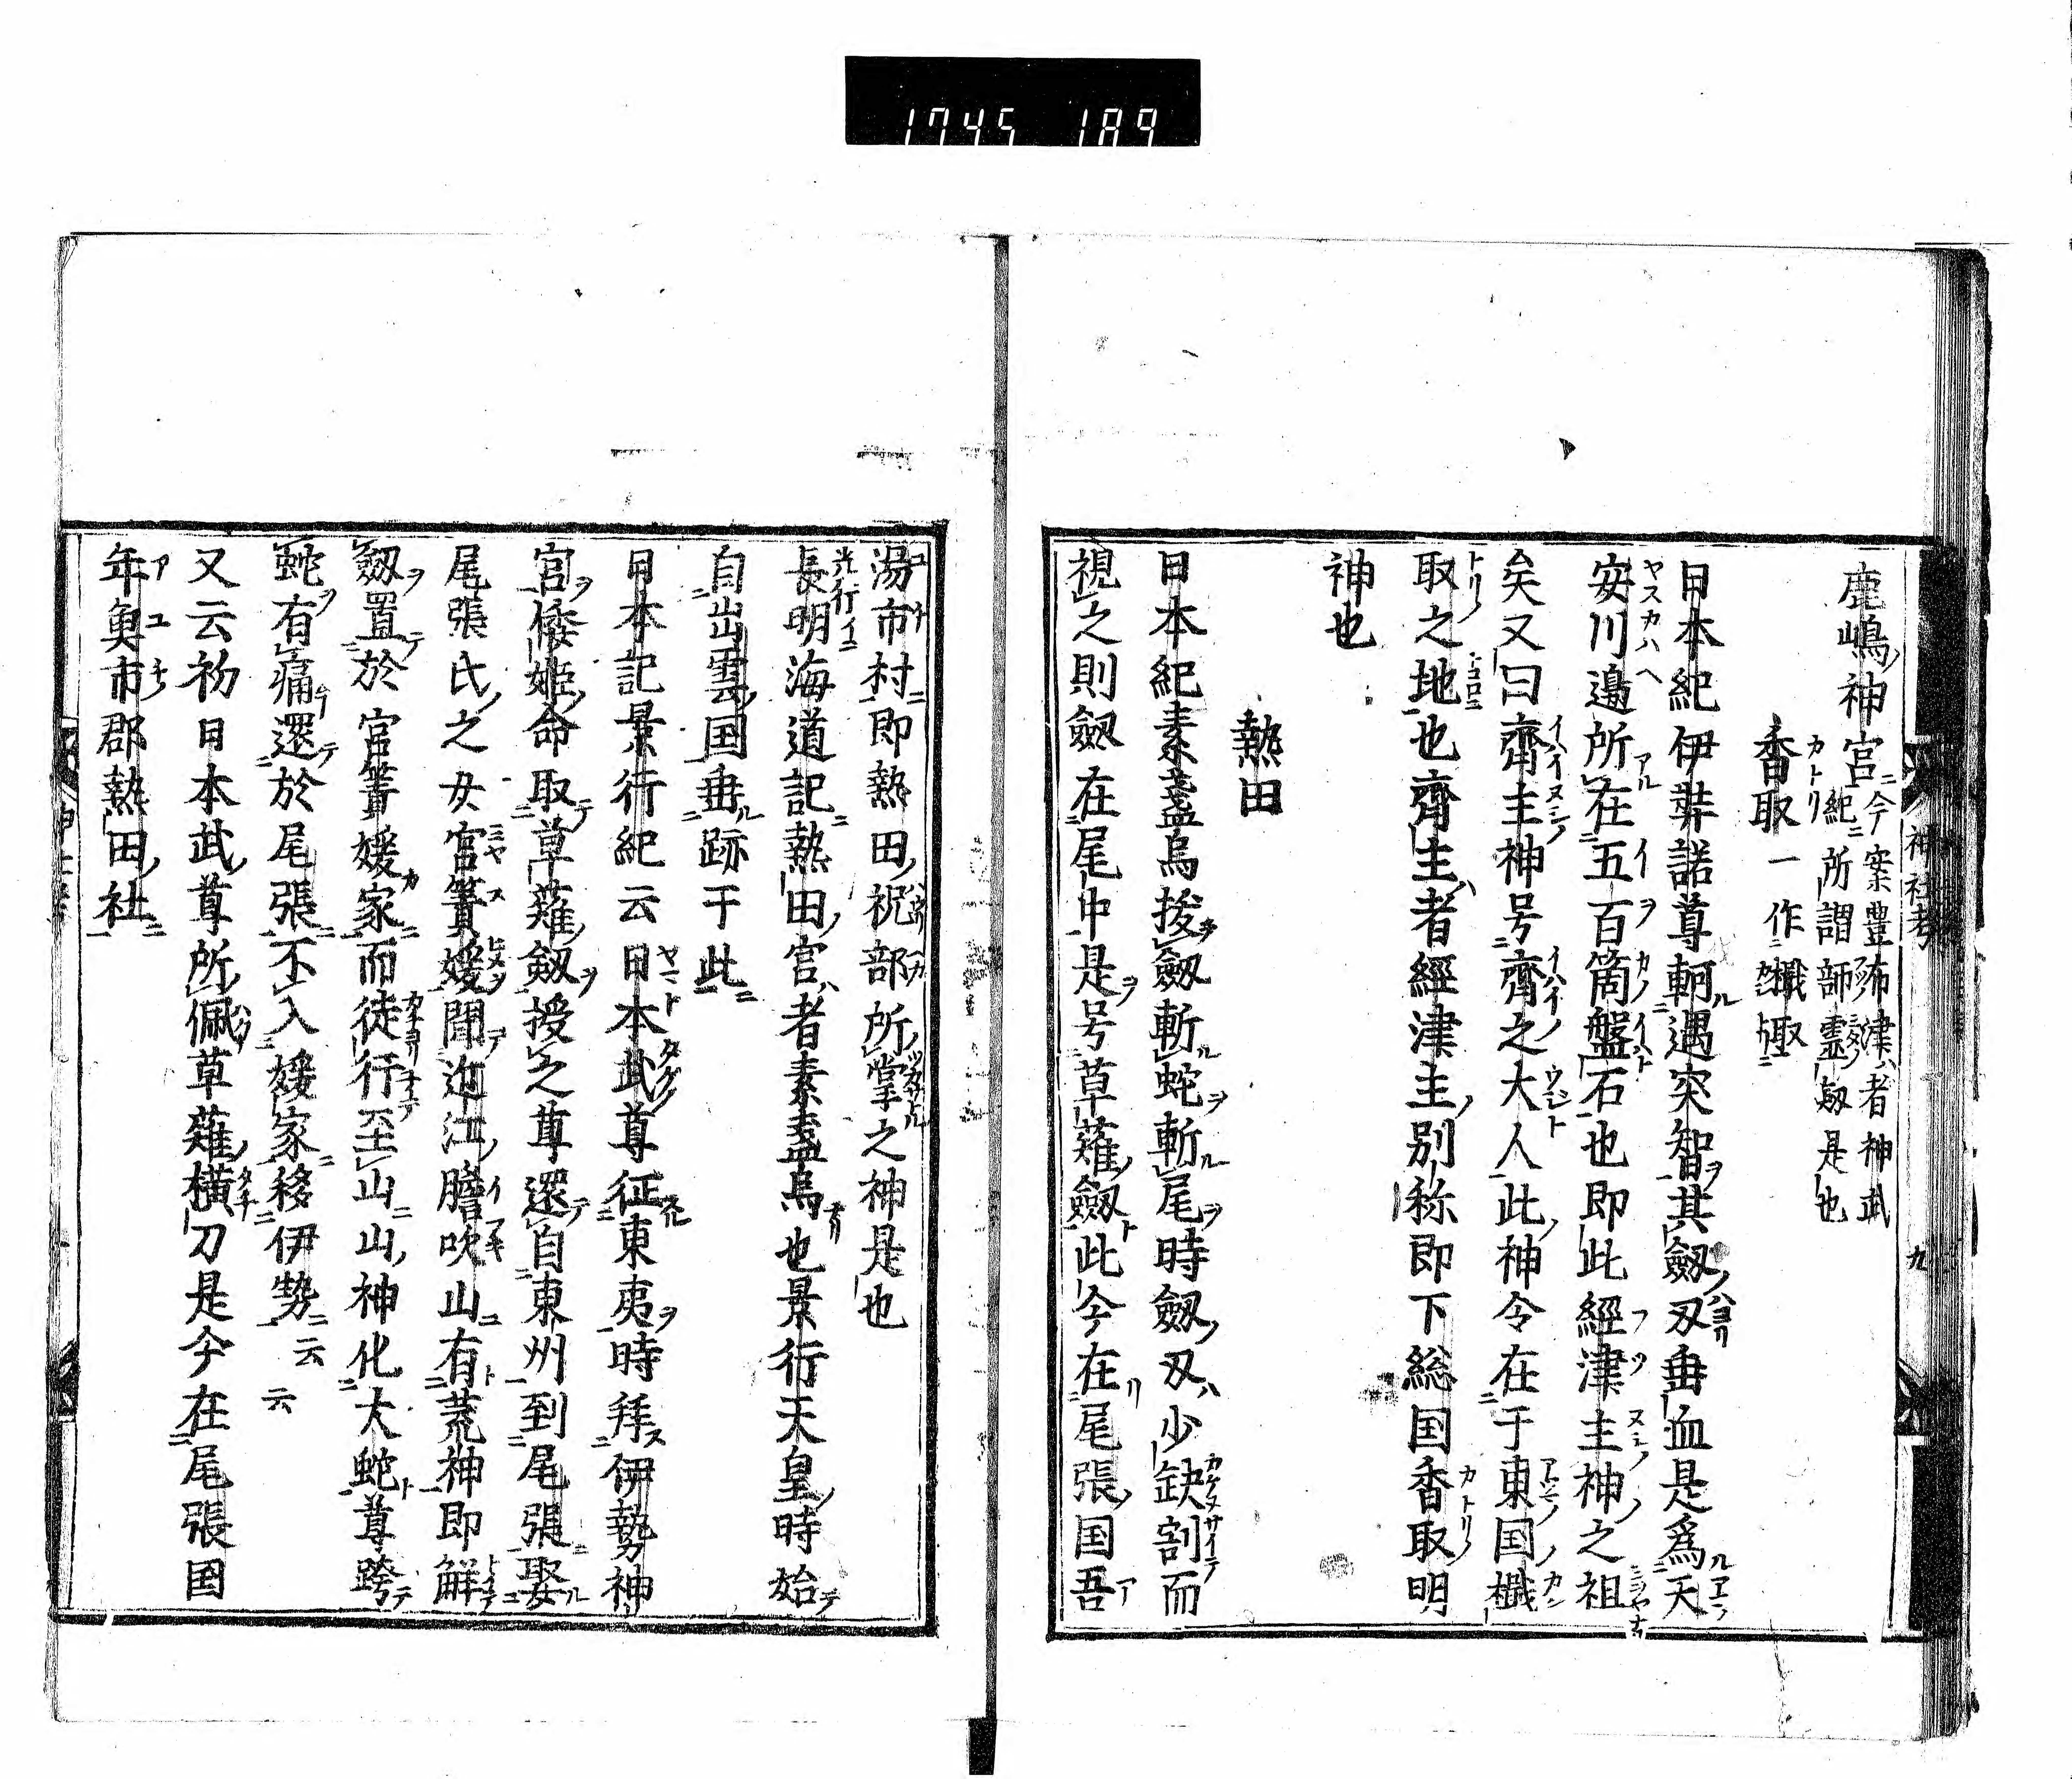 1745 189
神社考 九
鹿嶋神宮 今案豊布津者神武
紀所謂師霊剱是也
香取 一作檝取
日本紀伊弉諾尊軻遇突智其劔刄垂血是爲天
安川邊所在五百箇盤石也即此經津主神之祖
矣又曰齊主神号齊之大人此神令在于東国檝
取之地也齊主者經津主別称即下総国香取明
神也
熱田
日本紀素盞烏拔劔斬蛇斬尾時劔刄少缺割而
視之則劔在尾中是号草薙劔此今在尾張国吾
湯市村即熱田祝部所掌之神是也
長明海道記熱田宮者素盞烏也景行天皇時始
自出雲国垂跡于此
日本記景行紀云日本武尊征東夷時拜伊勢神
宮倭姫命取草薙剱授之尊還自東州到尾張娶
尾張氏之女宮簀媛聞近江膽吹山有荒神即解
劔置於宮簀媛家而徒行至山山神化大蛇尊跨
蛇有痛還於尾張不入媛家移伊勢云云
又云初日本武尊所佩草薙横刀是今在尾張国
年魚市郡熱田社